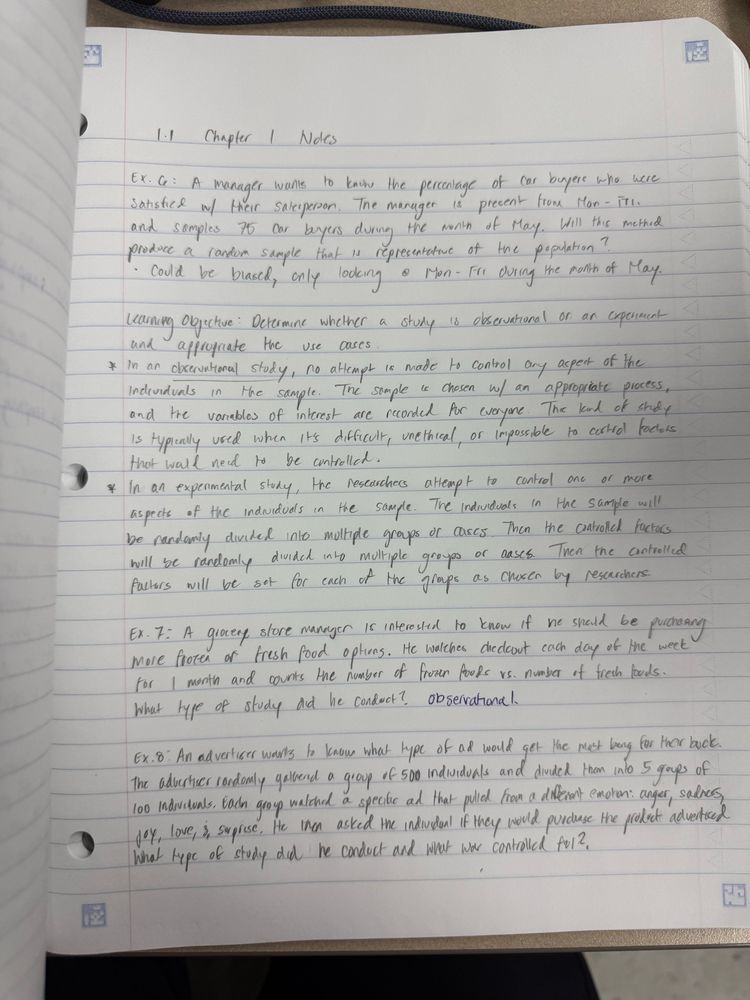 1.1 Chapter 1 Notes
Ex. 6: A manager wants to know the percentage of car buyers who were
satisfied w/ their salesperson. The manager is present from Mon - Fri.
and samples 75 car buyers during the month of May. Will this method
produce a random sample that is representative of the population?
· Could be biased, only looking @ Mon-Fri during the month of May.
Learning Objective: Determine whether a study is observational or an experiment
and appropriate the use cases.
* In an observational study, no attempt is made to control any aspect of the
individuals in the sample. The sample is chosen w/ an appropriate process,
and the variables of interest are recorded for everyone. This kind of study
is typically used when it's difficult, unethical, or impossible to control factors
that would need to be controlled.
* In an experimental study, the researchers attempt to control one or more
aspects of the individuals in the sample. The individuals in the sample will
be randomly divided into multiple groups or cases. Then the controlled factors
will be randomly divided into multiple groups or cases. Then the controlled
factors will be set for each of the groups as chosen by researchers
Ex. 7: A grocery store manager is interested to know if he should be purchasing
more frozen or fresh food options. He watches checkout each day of the week
for 1 month and counts the number of frozen foods vs. number of fresh foods.
What type of study did he conduct? observational.
Ex. 8: An advertiser wants to know what type of ad would get the most bang for their buck.
The advertiser randomly gathered a group of 500 individuals and divided them into 5 groups of
100 individuals. Each group watched a specific ad that pulled from a different emotion: anger, sadness,
joy, love, & surprise. He then asked the individual if they would purchase the product advertised
What type of study did he conduct and what was controlled for?